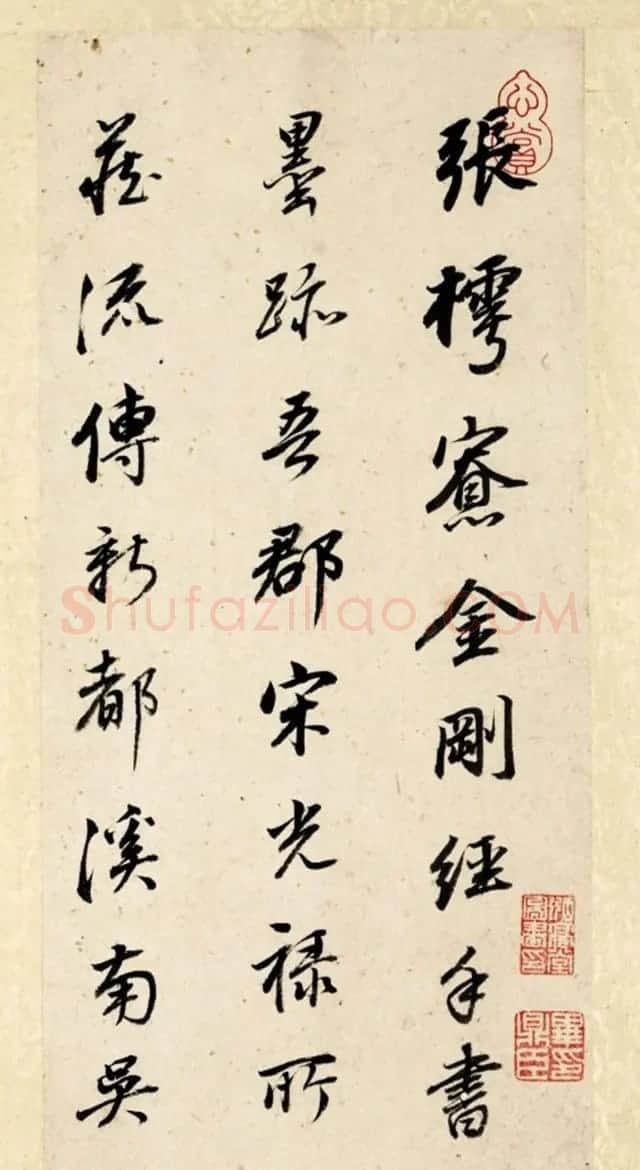 張樗寮金剛經手書
墨跡吾郡宋光祿所
藏流傳新都溪南吳
Shufaziliao.COM